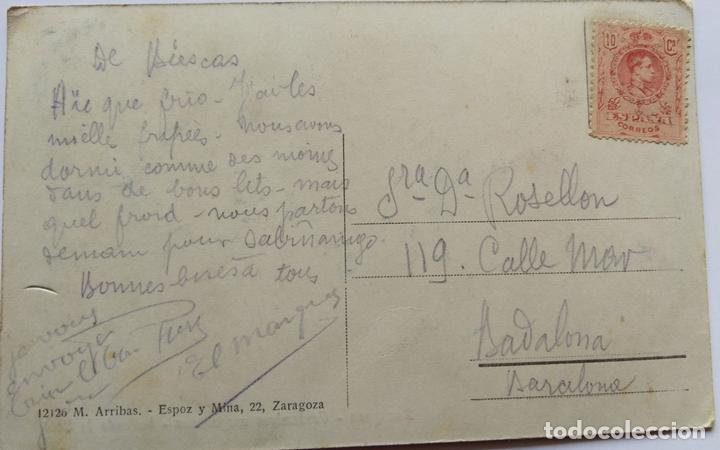 De Biescas
Aïe que frio - J'ai les
mielle fripées - Nous avons
dormi comme des moines
dans de bons lits - mais
quel froid - nous partons
demain pour Sabiñanigo.
Bonnes bises à tous
je vous
envoye
El Marques
10 Cs
CORREOS
Sra Da Rosellon
119. Calle Mar
Badalona
Barcelona
12126 M. Arribas. - Espoz y Mina, 22, Zaragoza
todocoleccion
todocoleccion.net